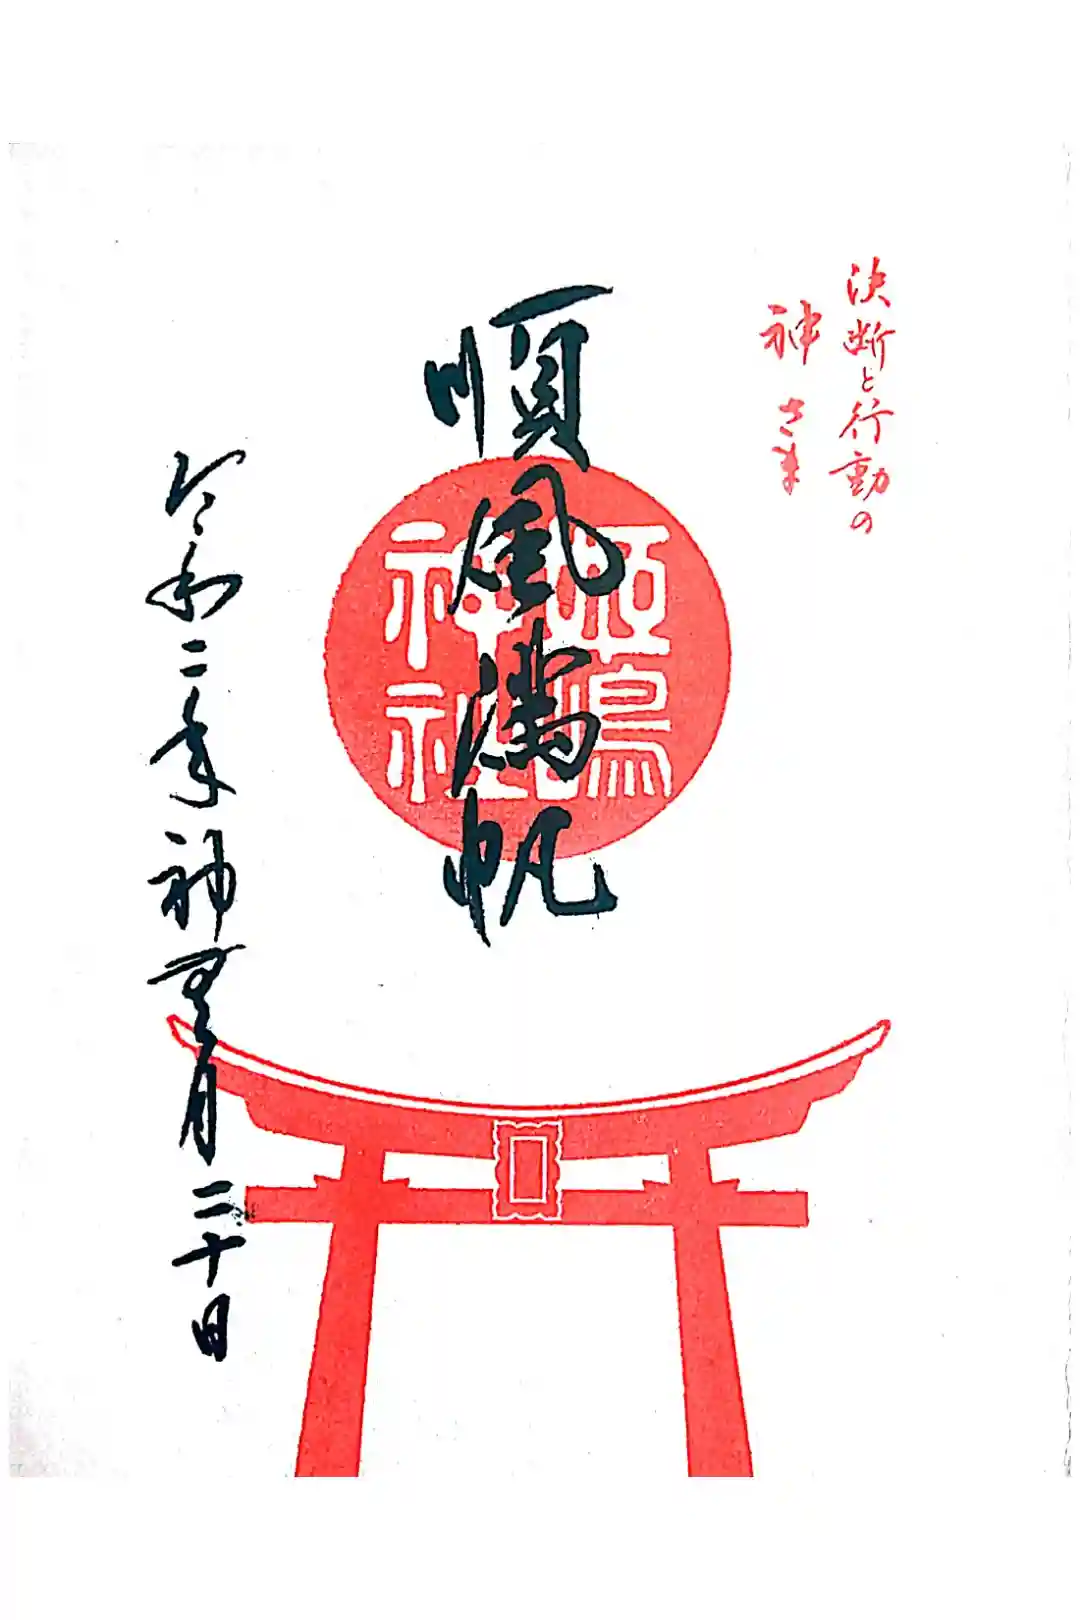 決断と行動の
神さま
順風満帆
姫嶋
神社
令和二年神無月二十日